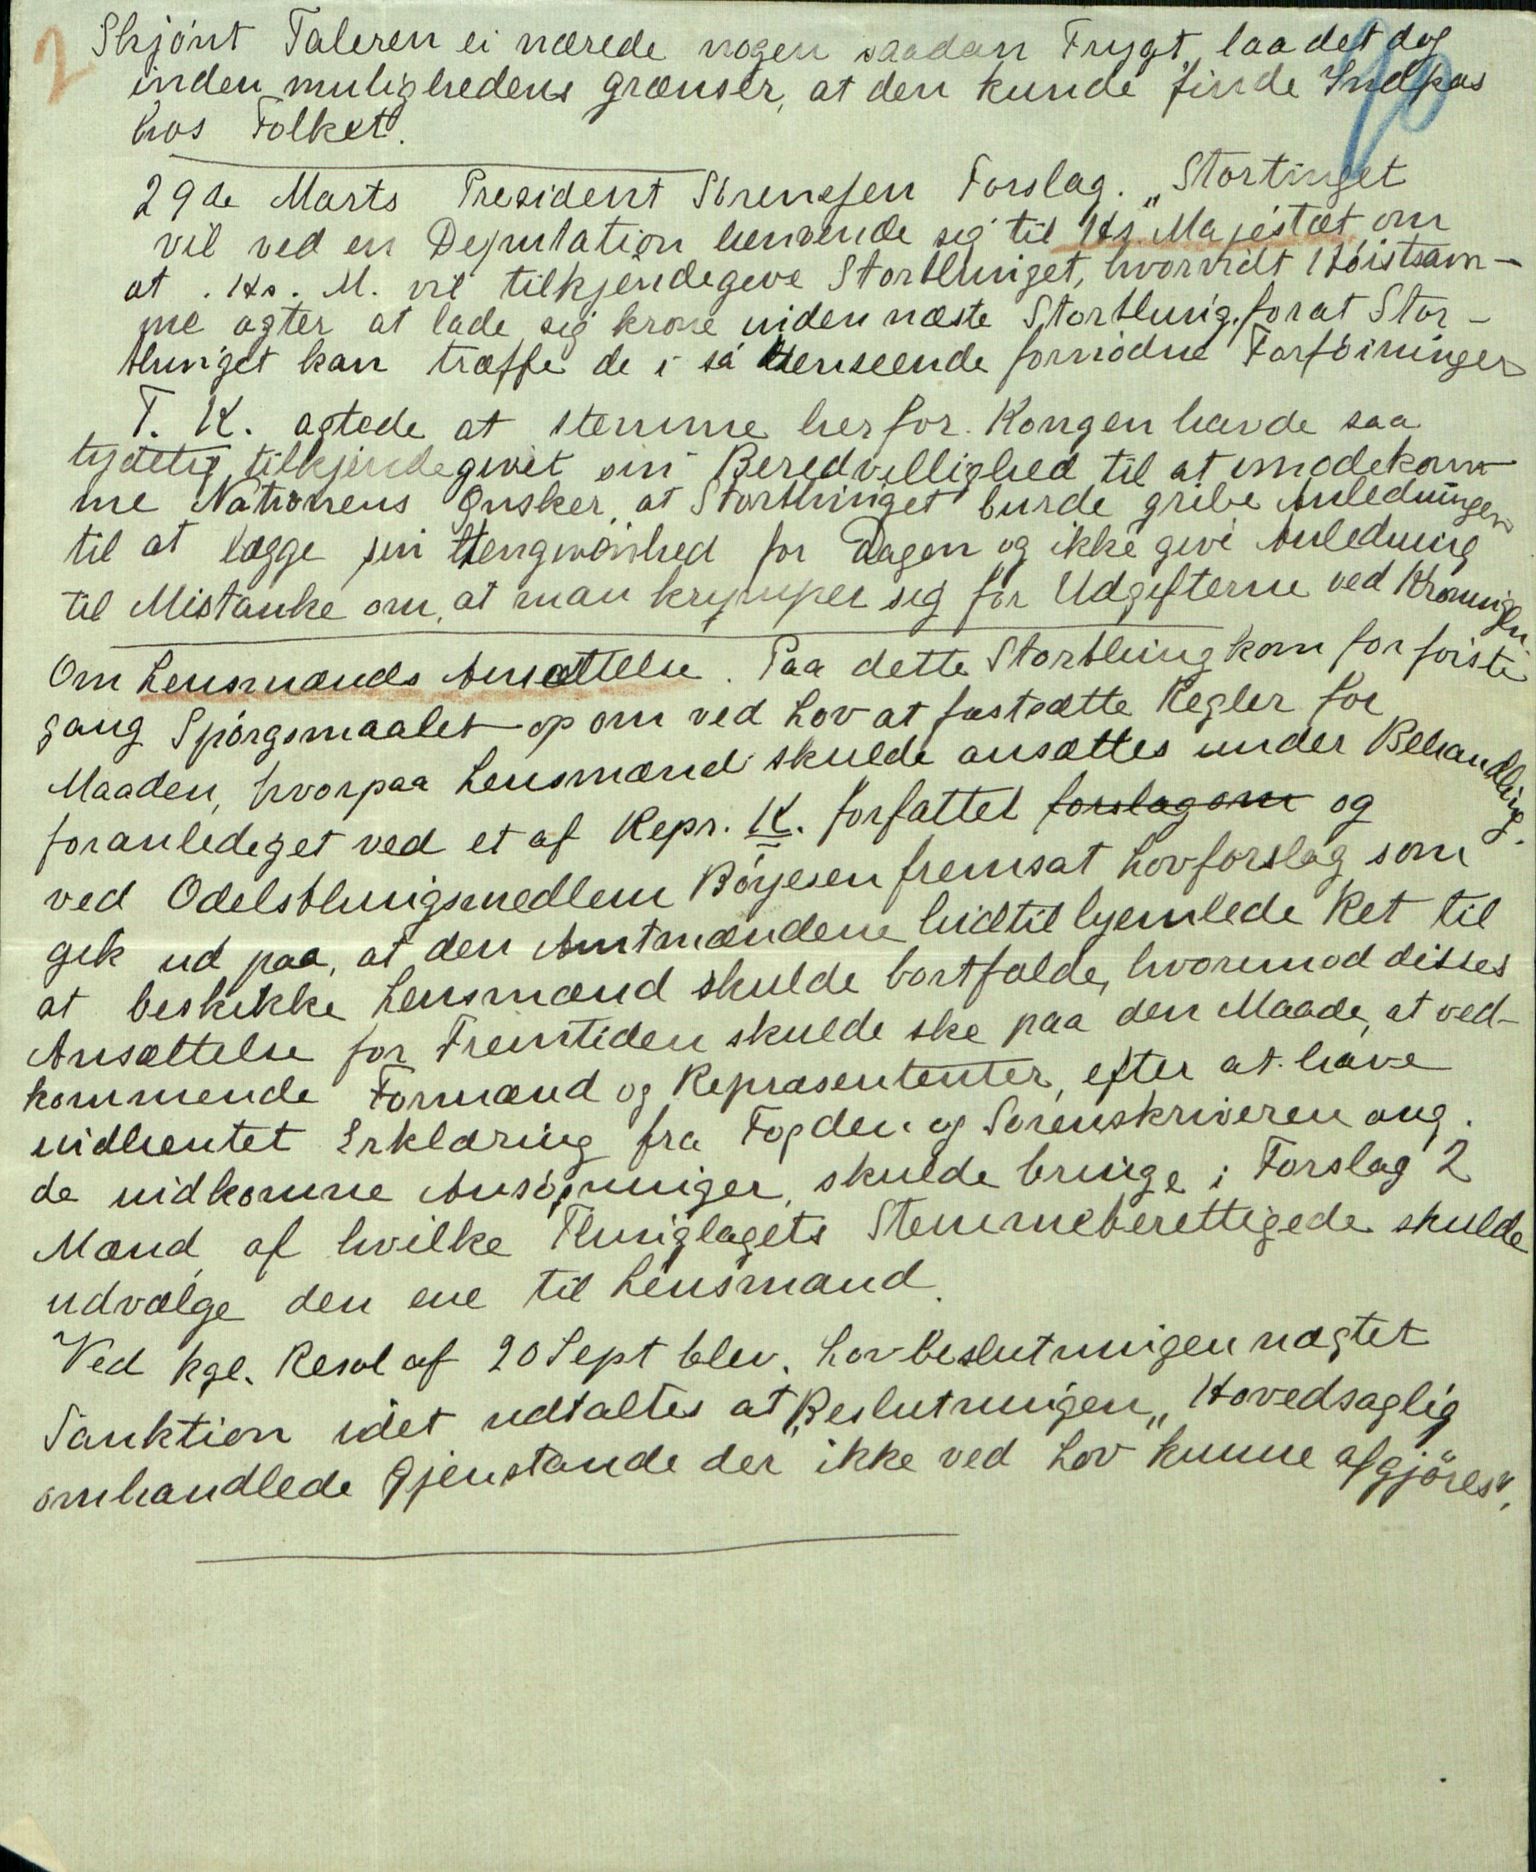 2
Skjönt Taleren ei nærede nogen saadan Frygt, laa det dog
inden mulighedens grænser, at den kunde finde Indpas
hos Folket.
29de Marts President Sörenssen Forslag. „Stortinget
vil ved en Deputation henvende sig til Hs. Majestæt om
at . Hs. M. vil tilkjendegive Storthinget, hvorvidt Höistsam-
me agter at lade sig krone inden næste Storthing, forat Stor-
thinget kan træffe de i så Henseende fornödne Forföininger
T. K. agtede at stemme herfor. Kongen havde saa
tydelig tilkjendegivet sin Beredvillighed til at imødekom-
me Nationens Ønsker, at Storthinget burde gribe Anledningen
til at lægge sin Hengivenhed for Dagen og ikke give Anledning
til Mistanke om, at man krymper sig for Udgifterne ved Kroningen.
Om Lensmænds Ansættelse. Paa dette Storthing kom for förste
gang Spörgsmaalet op om ved Lov at fastsætte Regler for
Maaden, hvorpaa Lensmænd skulde ansættes under Behandling.
foranlediget ved et af Repr. K. forfattet forslag om og
ved Odelsthingsmedlem Böyesen fremsat Lovforslag som
gik ud paa, at den Amtmændene hidtil hjemlede Ret til
at beskikke Lensmænd skulde bortfalde, hvorimod disses
Ansættelse for Fremtiden skulde ske paa den Maade, at ved-
kommende Formænd og Repræsententer, efter at have
indhentet Erklæring fra Fogden og Sorenskriveren ang.
de indkomne Ansögninger, skulde bringe i Forslag 2
Mænd, af hvilke Thinglagets Stemmeberettigede skulde
udvælge den ene til Lensmand.
Ved kgl. Resol af 20 Sept blev. Lovbeslutningen nægtet
Sanktion idet udtaltes at Beslutningen „Hovedsaglig
omhandlede Gjenstande der ikke ved Lov kunne afgjöres".